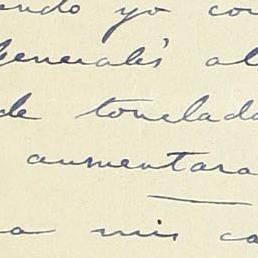 endo yo con
Generales al
de tonelada
aumentara
a mis ca